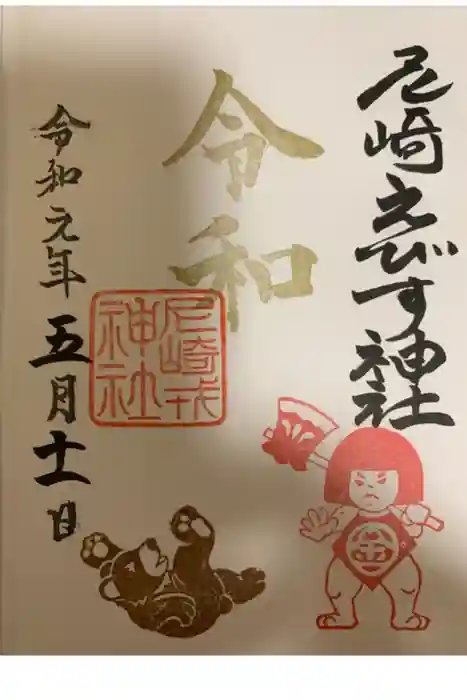 尼崎えびす神社
令和
尼崎戎
神社
金
令和元年五月十一日